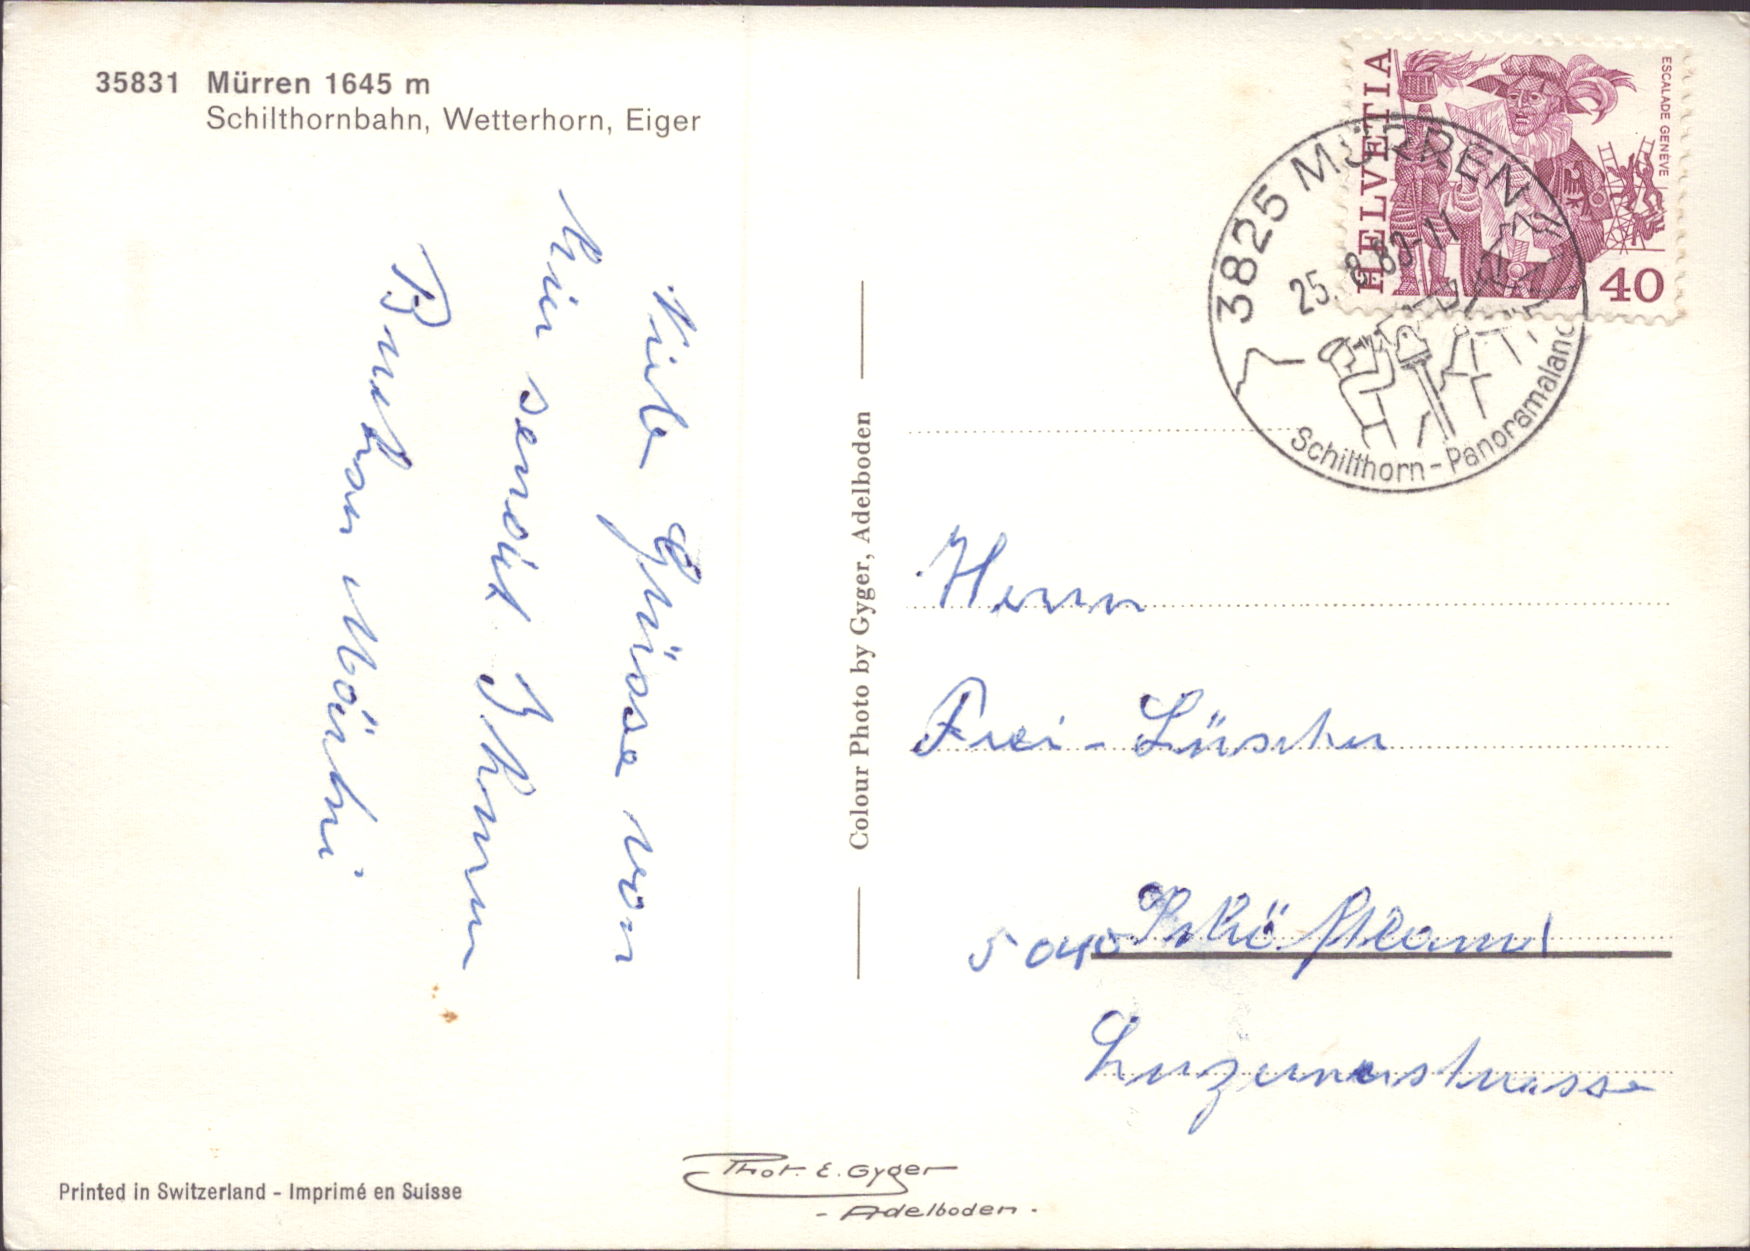 35831 Mürren 1645 m
Schilthornbahn, Wetterhorn, Eiger
HELVETIA
ESCALADE GENÈVE
40
3825 MÜRREN
25. 8. 80-11
Schilthorn-Panoramaland
Viele Grüsse von
hier sendet Ihnen
Colour Photo by Gyger, Adelboden
Herrn
Frei-Lüscher
5040 Schöftland
Luzernerstrasse
Printed in Switzerland - Imprimé en Suisse
Phot. E. Gyger
- Adelboden -